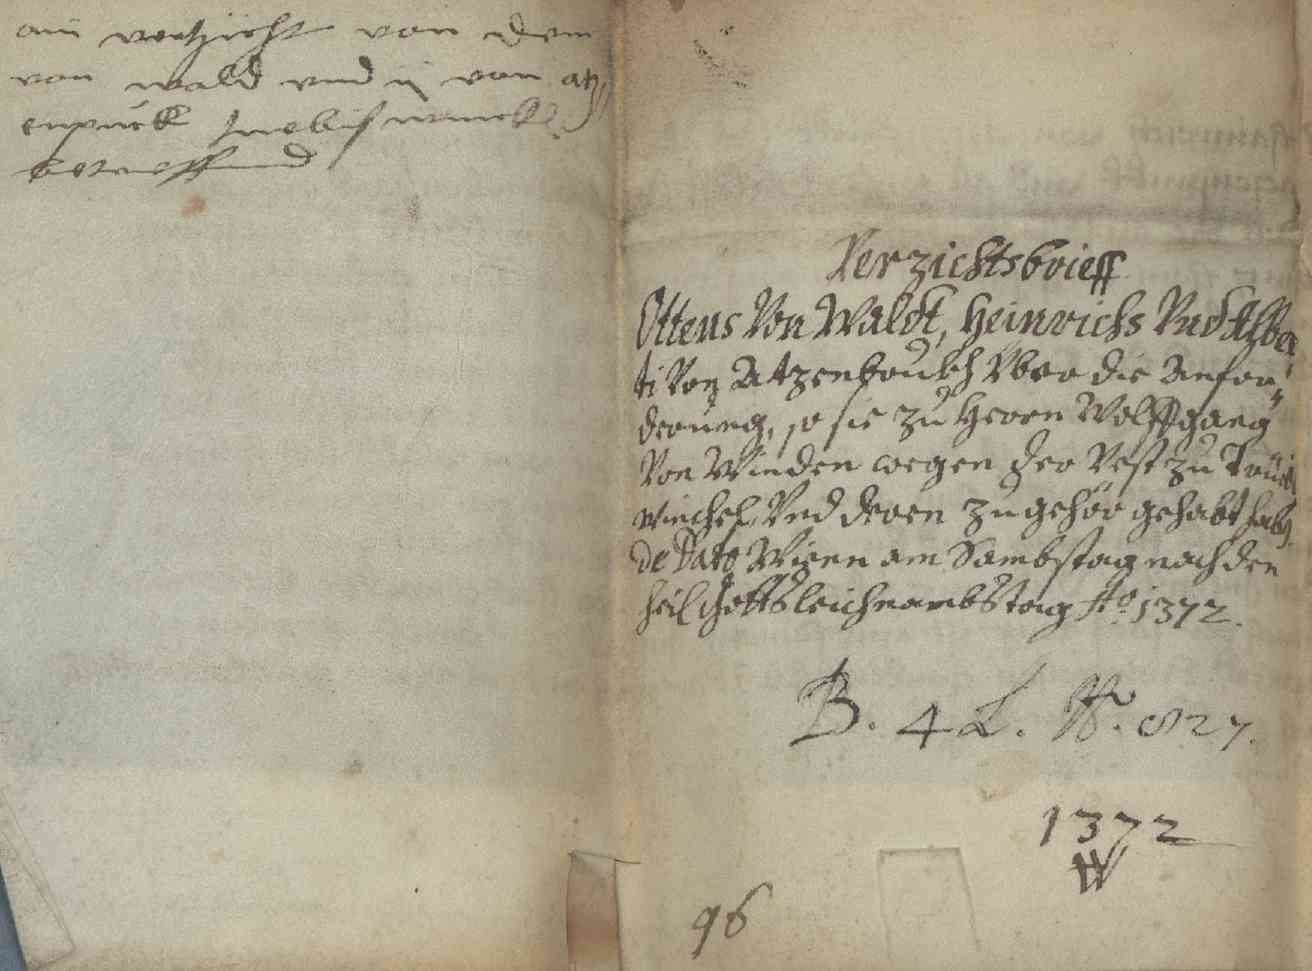 ain vertzicht von dem
von wald vnd ij von atz
enpruck
betreffend
Verzichtsbrieff
Ottens Von Waldt, Heinrichs Vnd Alber
ti Von Atzenbrukh Vber die Anfor„
derung, so sie zu Herrn Wolffgang
Von Winden wegen der Vest zu
winchel, Vnd deren zugehör gehabt hab
de Dato Wienn am Sambstag nach den
heil Gottsleichnambstag Ao. 1372.
B. 4 L. 827.
1372
W
96